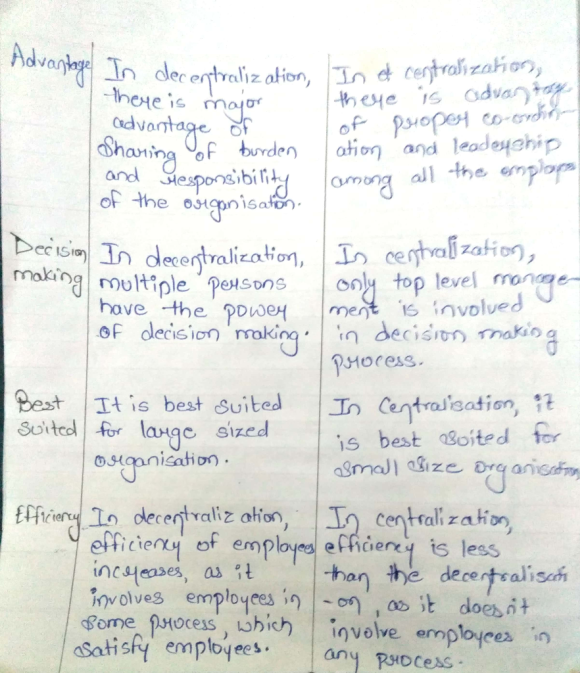 Advantage
In decentralization,
there is major
advantage of
Sharing of burden
and responsibility
of the organisation.
In centralization,
there is advantage
of proper co-ordin-
ation and leadership
among all the employe
Decision
making
In decentralization,
multiple persons
have the power
of decision making.
In centralization,
only top level manage-
ment is involved
in decision making
process.
Best
suited
It is best suited
for large sized
organisation.
In Centralisation, it
is best suited for
small size organisation
Efficiency
In decentralization,
efficiency of employees
increases, as it
involves employees in
some process, which
satisfy employees.
In centralization,
efficiency is less
than the decentralisati
-on, as it doesn't
involve employees in
any process.